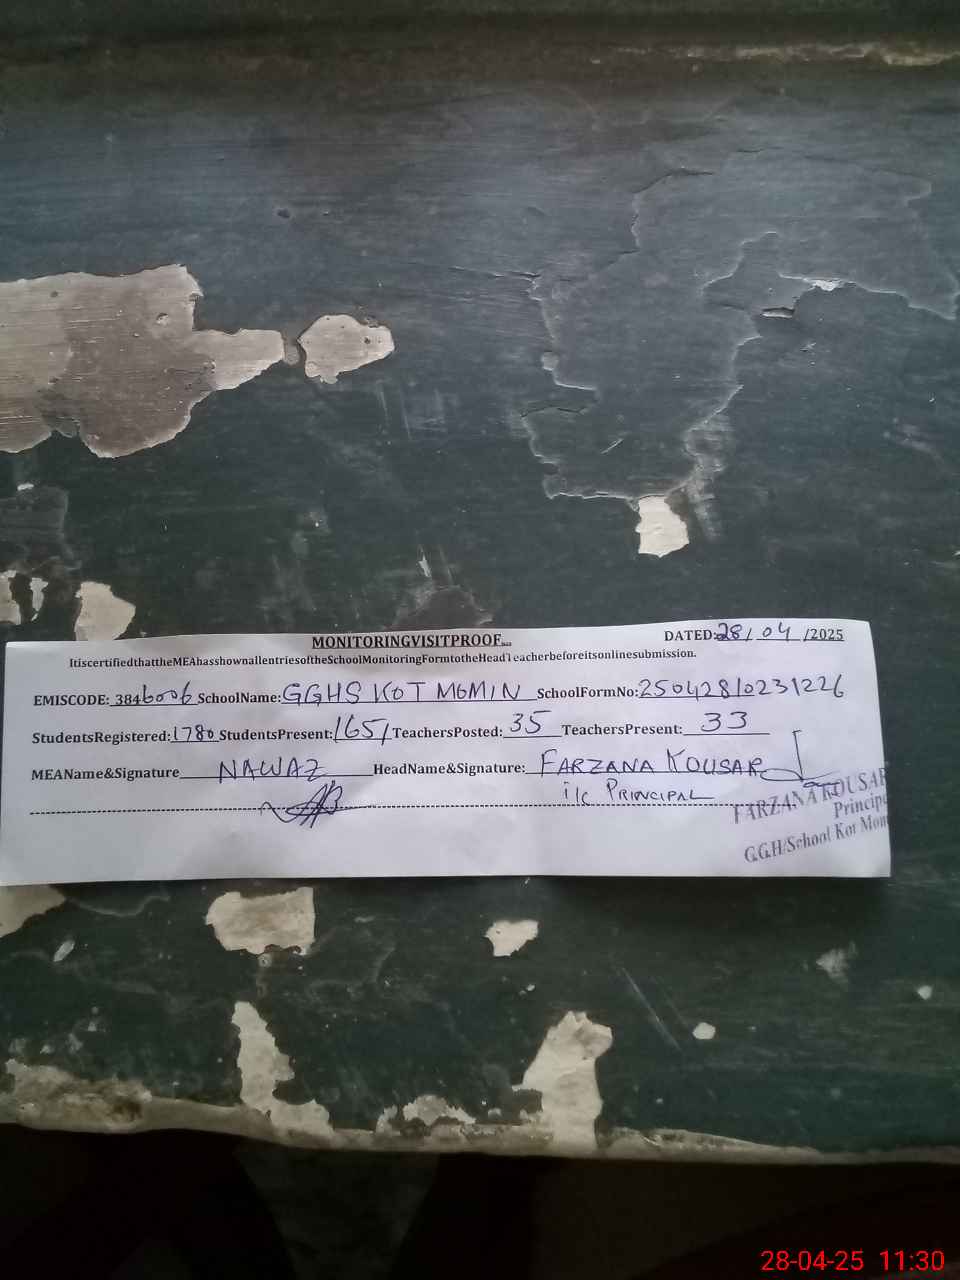 MONITORINGVISITPROOF
DATED:28/04/2025
ItiscertifiedthattheMEAhasshownallentriesoftheSchoolMonitoringFormtotheHeadTeacherbeforeitsonlinesubmission.
EMISCODE: 3846006 SchoolName: GGHS KOT MOMIN SchoolFormNo: 25042810231226
StudentsRegistered: 1780 StudentsPresent: 1651 TeachersPosted: 35 TeachersPresent: 33
MEAName&Signature NAWAZ HeadName&Signature: FARZANA KOUSAR
i/c PRINCIPAL
FARZANA KOUSAR
Principa
G.G.H/School Kot Mom
28-04-25 11:30